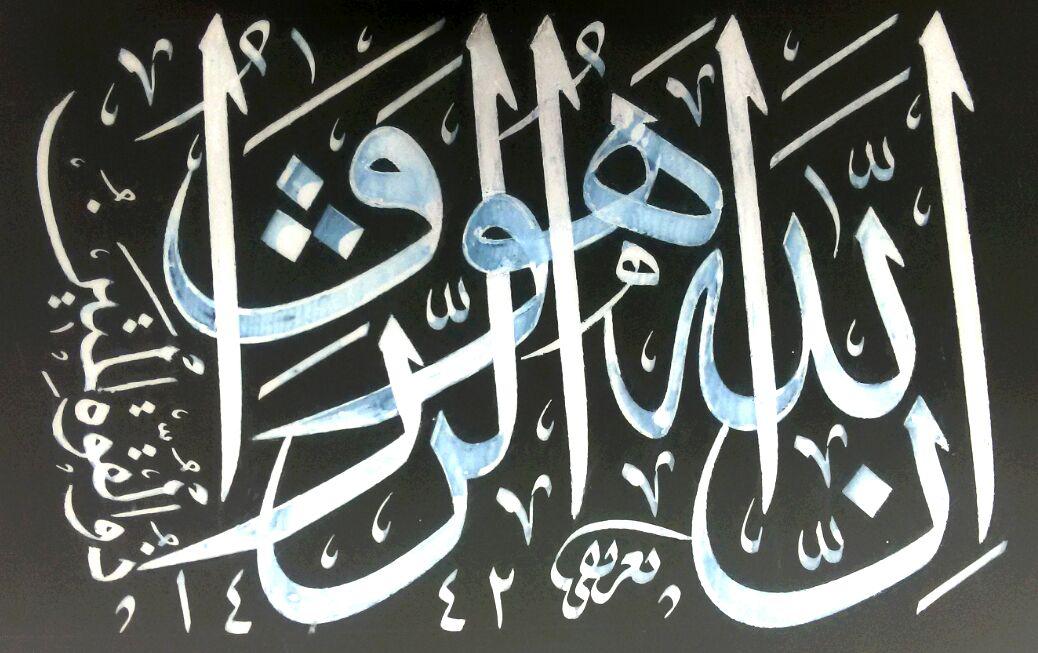 إِنَّ اللّٰهَ هُوَ الرَّزَّاقُ
ذُو الْقُوَّةِ الْمَتِينُ
١٤٤٢